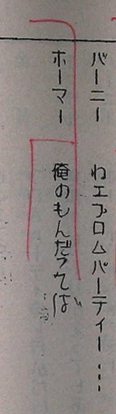 バーニー　ねエプロムパーティー…
ホーマー　俺のもんだってば